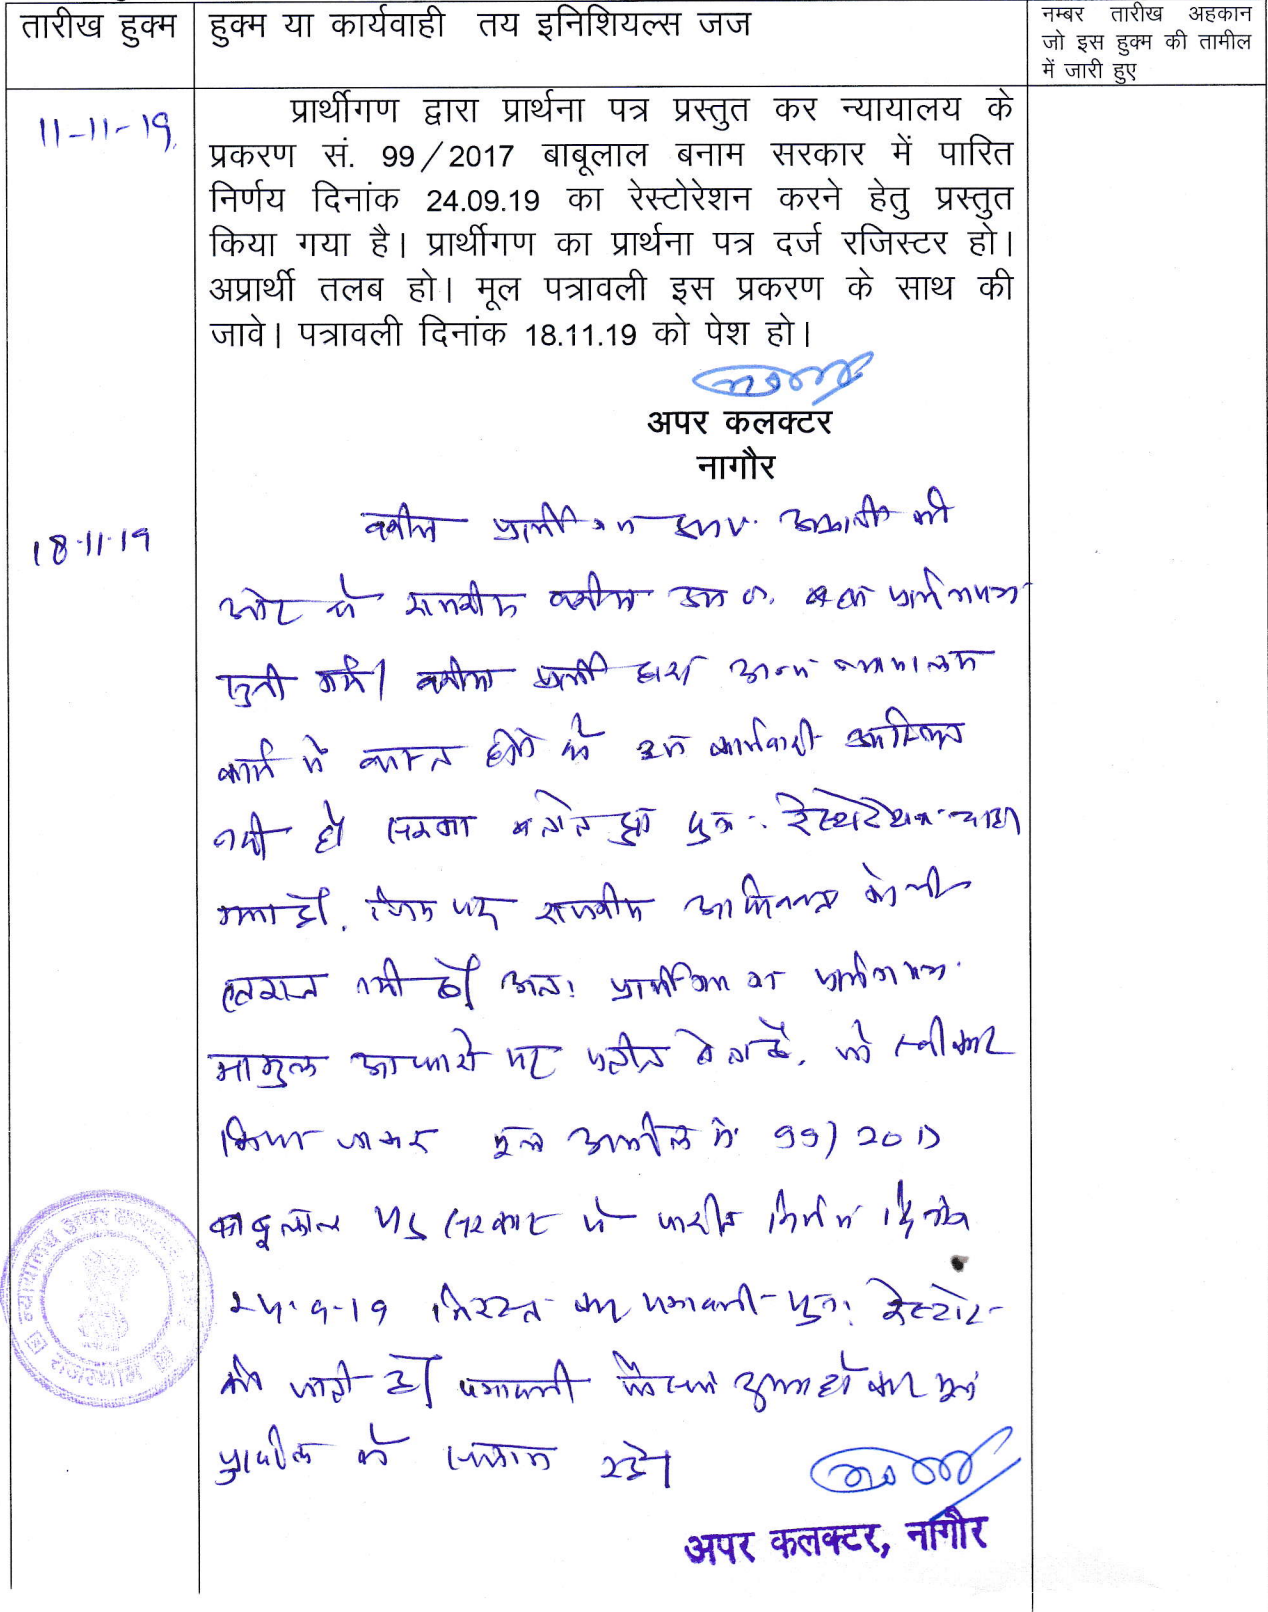 तारीख हुक्म
हुक्म या कार्यवाही तय इनिशियल्स जज
नम्बर तारीख अहकान
जो इस हुक्म की तामील
में जारी हुए
11-11-19
प्रार्थीगण द्वारा प्रार्थना पत्र प्रस्तुत कर न्यायालय के
प्रकरण सं. 99/2017 बाबूलाल बनाम सरकार में पारित
निर्णय दिनांक 24.09.19 का रेस्टोरेशन करने हेतु प्रस्तुत
किया गया है। प्रार्थीगण का प्रार्थना पत्र दर्ज रजिस्टर हो।
अप्रार्थी तलब हो। मूल पत्रावली इस प्रकरण के साथ की
जावे। पत्रावली दिनांक 18.11.19 को पेश हो।
अपर कलक्टर
नागौर
18.11.19
वकील प्रार्थीगण उप. अप्रार्थी की
ओर से राजकीय वकील उप. बहस प्रार्थनापत्र
सुनी गयी। वकील प्रार्थी द्वारा अन्य न्यायालय
कार्य में व्यस्त होने से
नहीं हो सकना बताते हुए पुनः रेस्टोरेशन चाहा
गया है, जिस पर राजकीय अभिभाषक को भी
एतराज नहीं है। अतः प्रार्थीगण का प्रार्थनापत्र
माकुल आधारो पर प्रतीत होता है, को स्वीकार
किया जाकर मूल अपील सं 99/2017
बाबूलाल सरकार में पारित निर्णय दिनांक
24.9.19 निरस्त कर पत्रावली पुनः रेस्टोर
की जाती है। पत्रावली फैसल शुमार होकर मूल
अपील के संलग्न रहे।
अपर कलक्टर, नागौर
राजस्थान